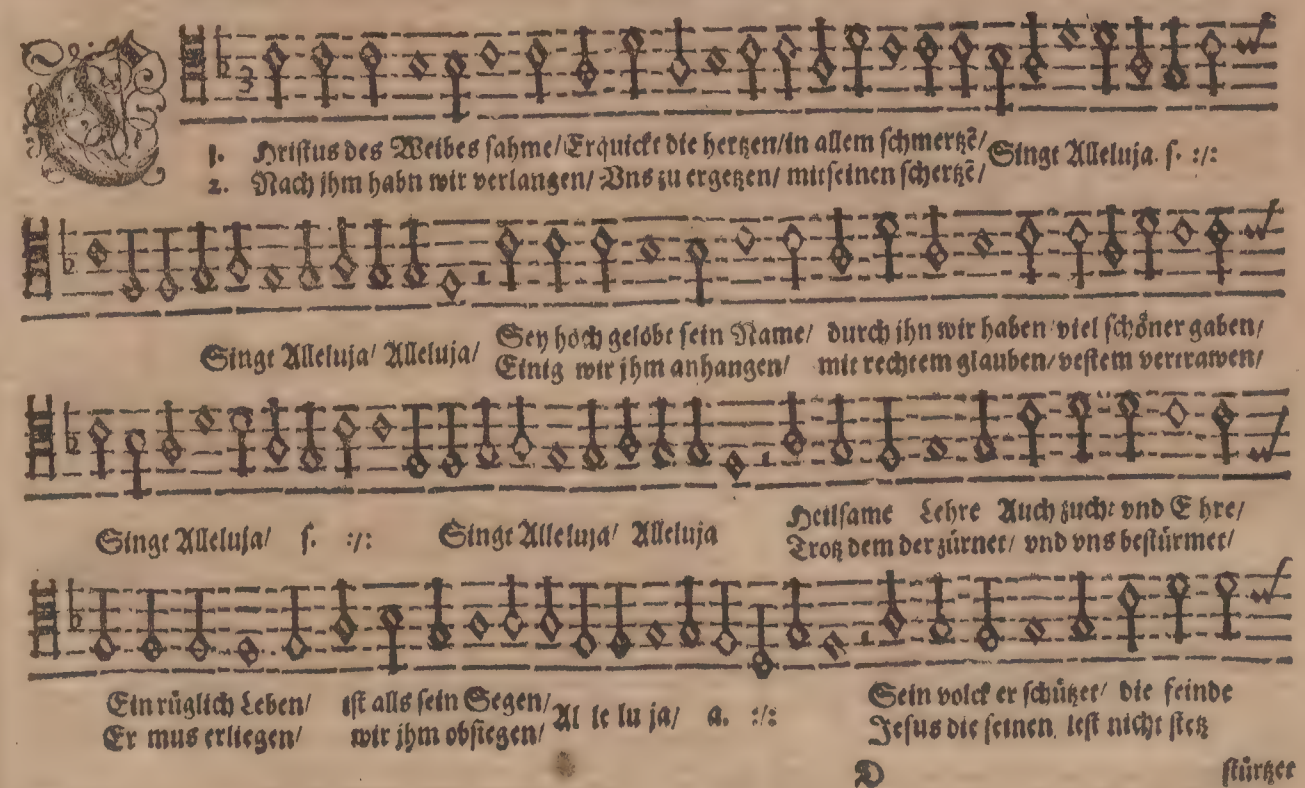 C
1. Hristus des Weibes sahme/ Erquickt die hertzen/ in allem schmertzẽ/ Singt Alleluja. s. :/:
2. Nach jhm habn wir verlangen/ Vns zu ergetzen/ mit seinen schertzẽ/
Singt Alleluja/ Alleluja/ Sey hoch gelobt sein Name/ durch jhn wir haben viel schöner gaben/
Einig wir jhm anhangen/ mit rechtem glauben/ vestem vertrawen/
Singt Alleluja/ s. :/: Singt Alleluja/ Alleluja Heilsame Lehre Auch zucht vnd Ehre/
Trotz dem der zürnet/ vnd vns bestürmet/
Ein rüglich Leben/ ist alls sein Segen/ Al le lu ja/ a. :/: Sein volck er schützet/ die feinde
Er mus erliegen/ wir jhm obsiegen/ Jesus die seinen lest nicht stetz
D stürtzet